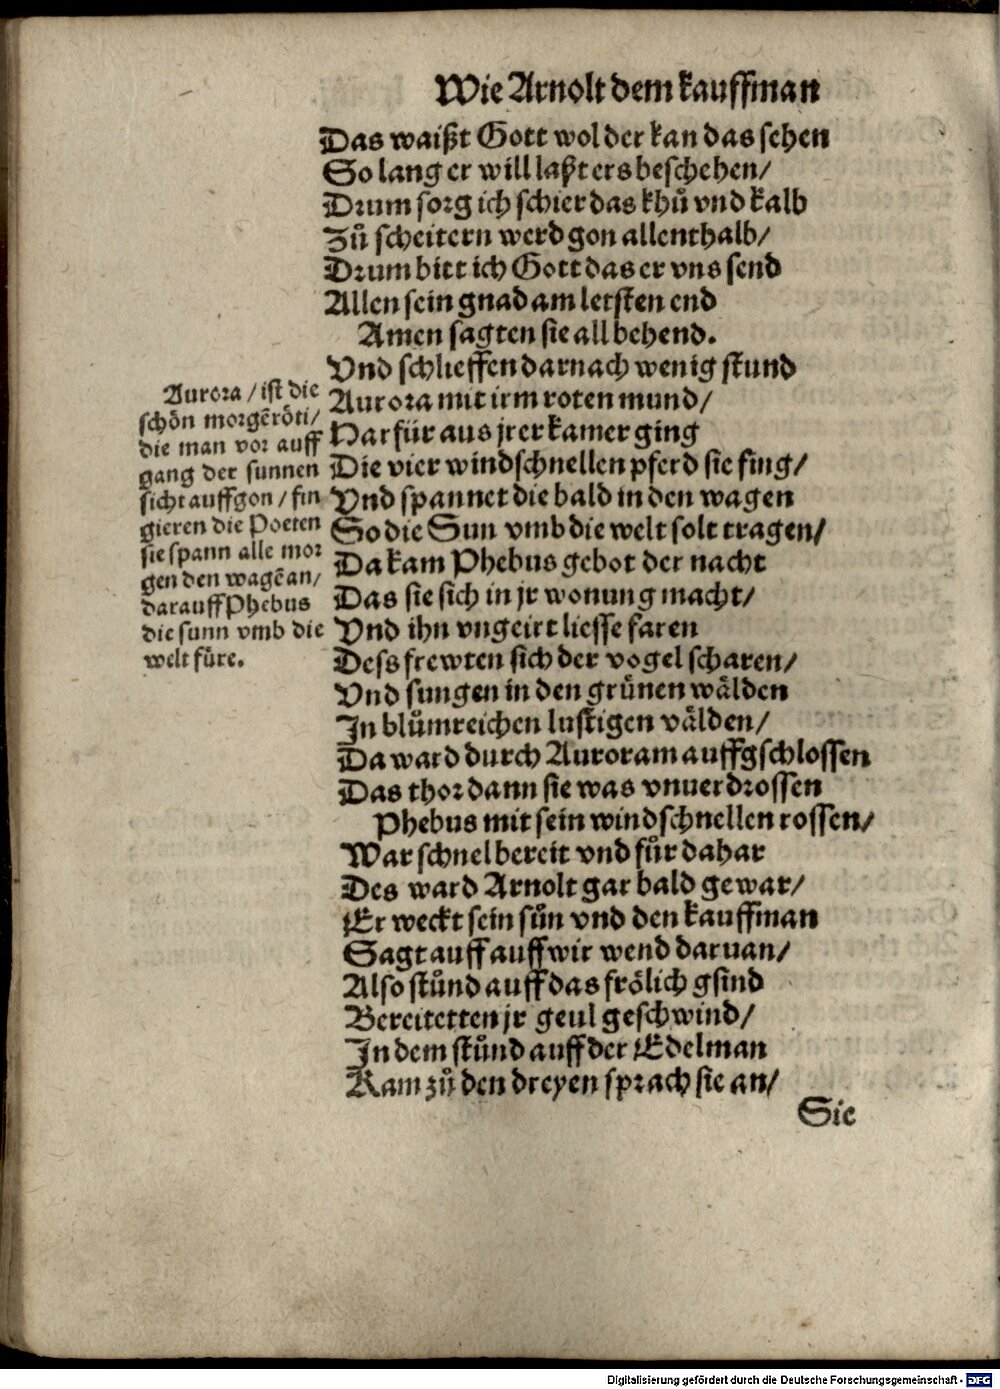 Wie Arnolt dem kauffman
Das waißt Gott wol der kan das sehen
So lang er will laßt ers beschehen/
Drum sorg ich schier das khů vnd kalb
Zů scheitern werd gon allenthalb/
Drum bitt ich Gott das er vns send
Allen sein gnad am letsten end
Amen sagten sie all behend.
Vnd schlieffen darnach wenig stund
Aurora mit irm roten mund/
Harfür aus jrer kamer ging
Die vier windschnellen pferd sie fing/
Vnd spannet die bald in den wagen
So die Sun vmb die welt solt tragen/
Da kam Phebus gebot der nacht
Das sie sich in jr wonung macht/
Vnd ihn vngeirt liesse faren
Dess frewten sich der vogel scharen/
Vnd sungen in den grůnen wälden
In blůmreichen lustigen välden/
Da ward durch Auroram auffgschlossen
Das thor dann sie was vnuerdrossen
Phebus mit sein windschnellen rossen/
War schnel bereit vnd fůr dahar
Des ward Arnolt gar bald gewar/
Er weckt sein sůn vnd den kauffman
Sagt auff auff wir wend daruan/
Also stůnd auff das frölich gsind
Bereitetten jr geul geschwind/
In dem stůnd auff der Edelman
Kam zů den dreyen sprach sie an/
Sie
Aurora / ist die
schön morgẽröti/
die man vor auff
gang der sunnen
sicht auffgon / fin
gieren die Poeten
sie spann alle mor
gen den wagẽ an/
darauff Phebus
die sunn vmb die
welt füre.
Digitalisierung gefördert durch die Deutsche Forschungsgemeinschaft - DFG